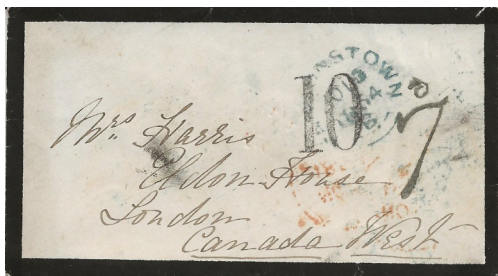 NSTOWN
10
7
Mrs Harris
Eldon House
London
Canada West